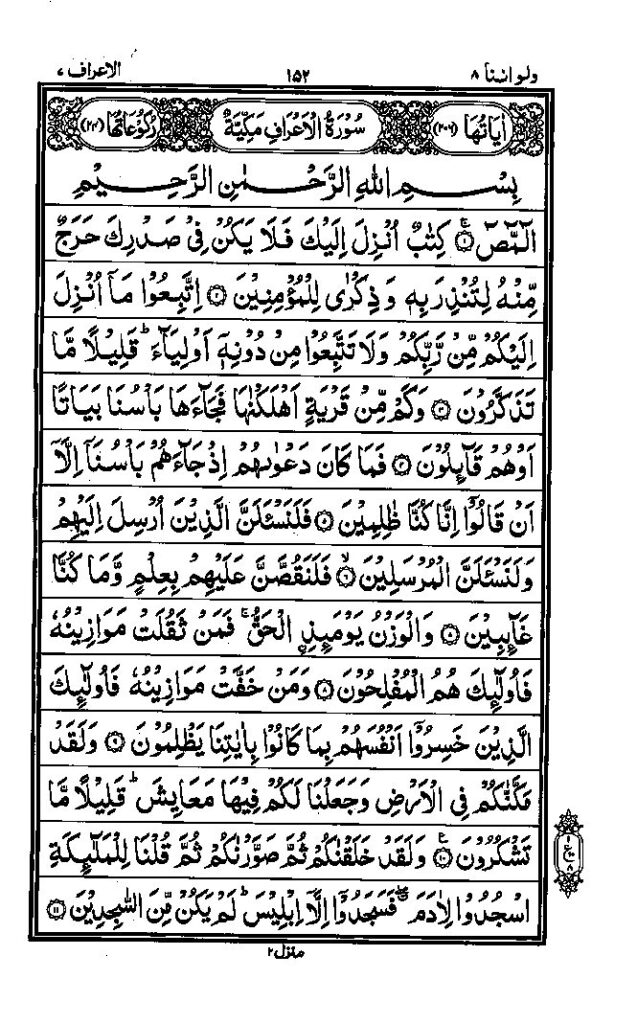 ولو اننا ٨ ١٥٢ الاعراف ٧
اٰيَاتُهَا (٢٠٦) سُوْرَةُ الْاَعْرَافِ مَكِّيَّةٌ رُكُوْعَاتُهَا (٢٤)
بِسْمِ اللّٰهِ الرَّحْمٰنِ الرَّحِيْمِ
الٓمّٓصٓ ۚ‏﴿١﴾ كِتٰبٌ اُنْزِلَ اِلَيْكَ فَلَا يَكُنْ فِيْ صَدْرِكَ حَرَجٌ
مِّنْهُ لِتُنْذِرَ بِهٖ وَ ذِكْرٰى لِلْمُؤْمِنِيْنَ ﴿٢﴾ اِتَّبِعُوْا مَاۤ اُنْزِلَ
اِلَيْكُمْ مِّنْ رَّبِّكُمْ وَلَا تَتَّبِعُوْا مِنْ دُوْنِهٖۤ اَوْلِيَآءَ ؕ قَلِيْلًا مَّا
تَذَكَّرُوْنَ ﴿٣﴾ وَكَمْ مِّنْ قَرْيَةٍ اَهْلَكْنٰهَا فَجَآءَهَا بَاْسُنَا بَيَاتًا
اَوْ هُمْ قَآئِلُوْنَ ﴿٤﴾ فَمَا كَانَ دَعْوٰىهُمْ اِذْ جَآءَهُمْ بَاْسُنَاۤ اِلَّاۤ
اَنْ قَالُوْۤا اِنَّا كُنَّا ظٰلِمِيْنَ ﴿٥﴾ فَلَنَسْئَلَنَّ الَّذِيْنَ اُرْسِلَ اِلَيْهِمْ
وَلَنَسْئَلَنَّ الْمُرْسَلِيْنَ ۙ﴿٦﴾ فَلَنَقُصَّنَّ عَلَيْهِمْ بِعِلْمٍ وَّمَا كُنَّا
غَآئِبِيْنَ ﴿٧﴾ وَالْوَزْنُ يَوْمَئِذِ اِۨلْحَقُّ ۚ فَمَنْ ثَقُلَتْ مَوَازِيْنُهٗ
فَاُولٰٓئِكَ هُمُ الْمُفْلِحُوْنَ ﴿٨﴾ وَمَنْ خَفَّتْ مَوَازِيْنُهٗ فَاُولٰٓئِكَ
الَّذِيْنَ خَسِرُوْۤا اَنْفُسَهُمْ بِمَا كَانُوْا بِاٰيٰتِنَا يَظْلِمُوْنَ ﴿٩﴾ وَلَقَدْ
مَكَّنّٰكُمْ فِي الْاَرْضِ وَجَعَلْنَا لَكُمْ فِيْهَا مَعَايِشَ ؕ قَلِيْلًا مَّا
تَشْكُرُوْنَ ﴿١٠﴾ وَلَقَدْ خَلَقْنٰكُمْ ثُمَّ صَوَّرْنٰكُمْ ثُمَّ قُلْنَا لِلْمَلٰٓئِكَةِ
اسْجُدُوْا لِاٰدَمَ ۖ فَسَجَدُوْۤا اِلَّاۤ اِبْلِيْسَ ؕ لَمْ يَكُنْ مِّنَ السّٰجِدِيْنَ ﴿١١﴾
منزل ٢